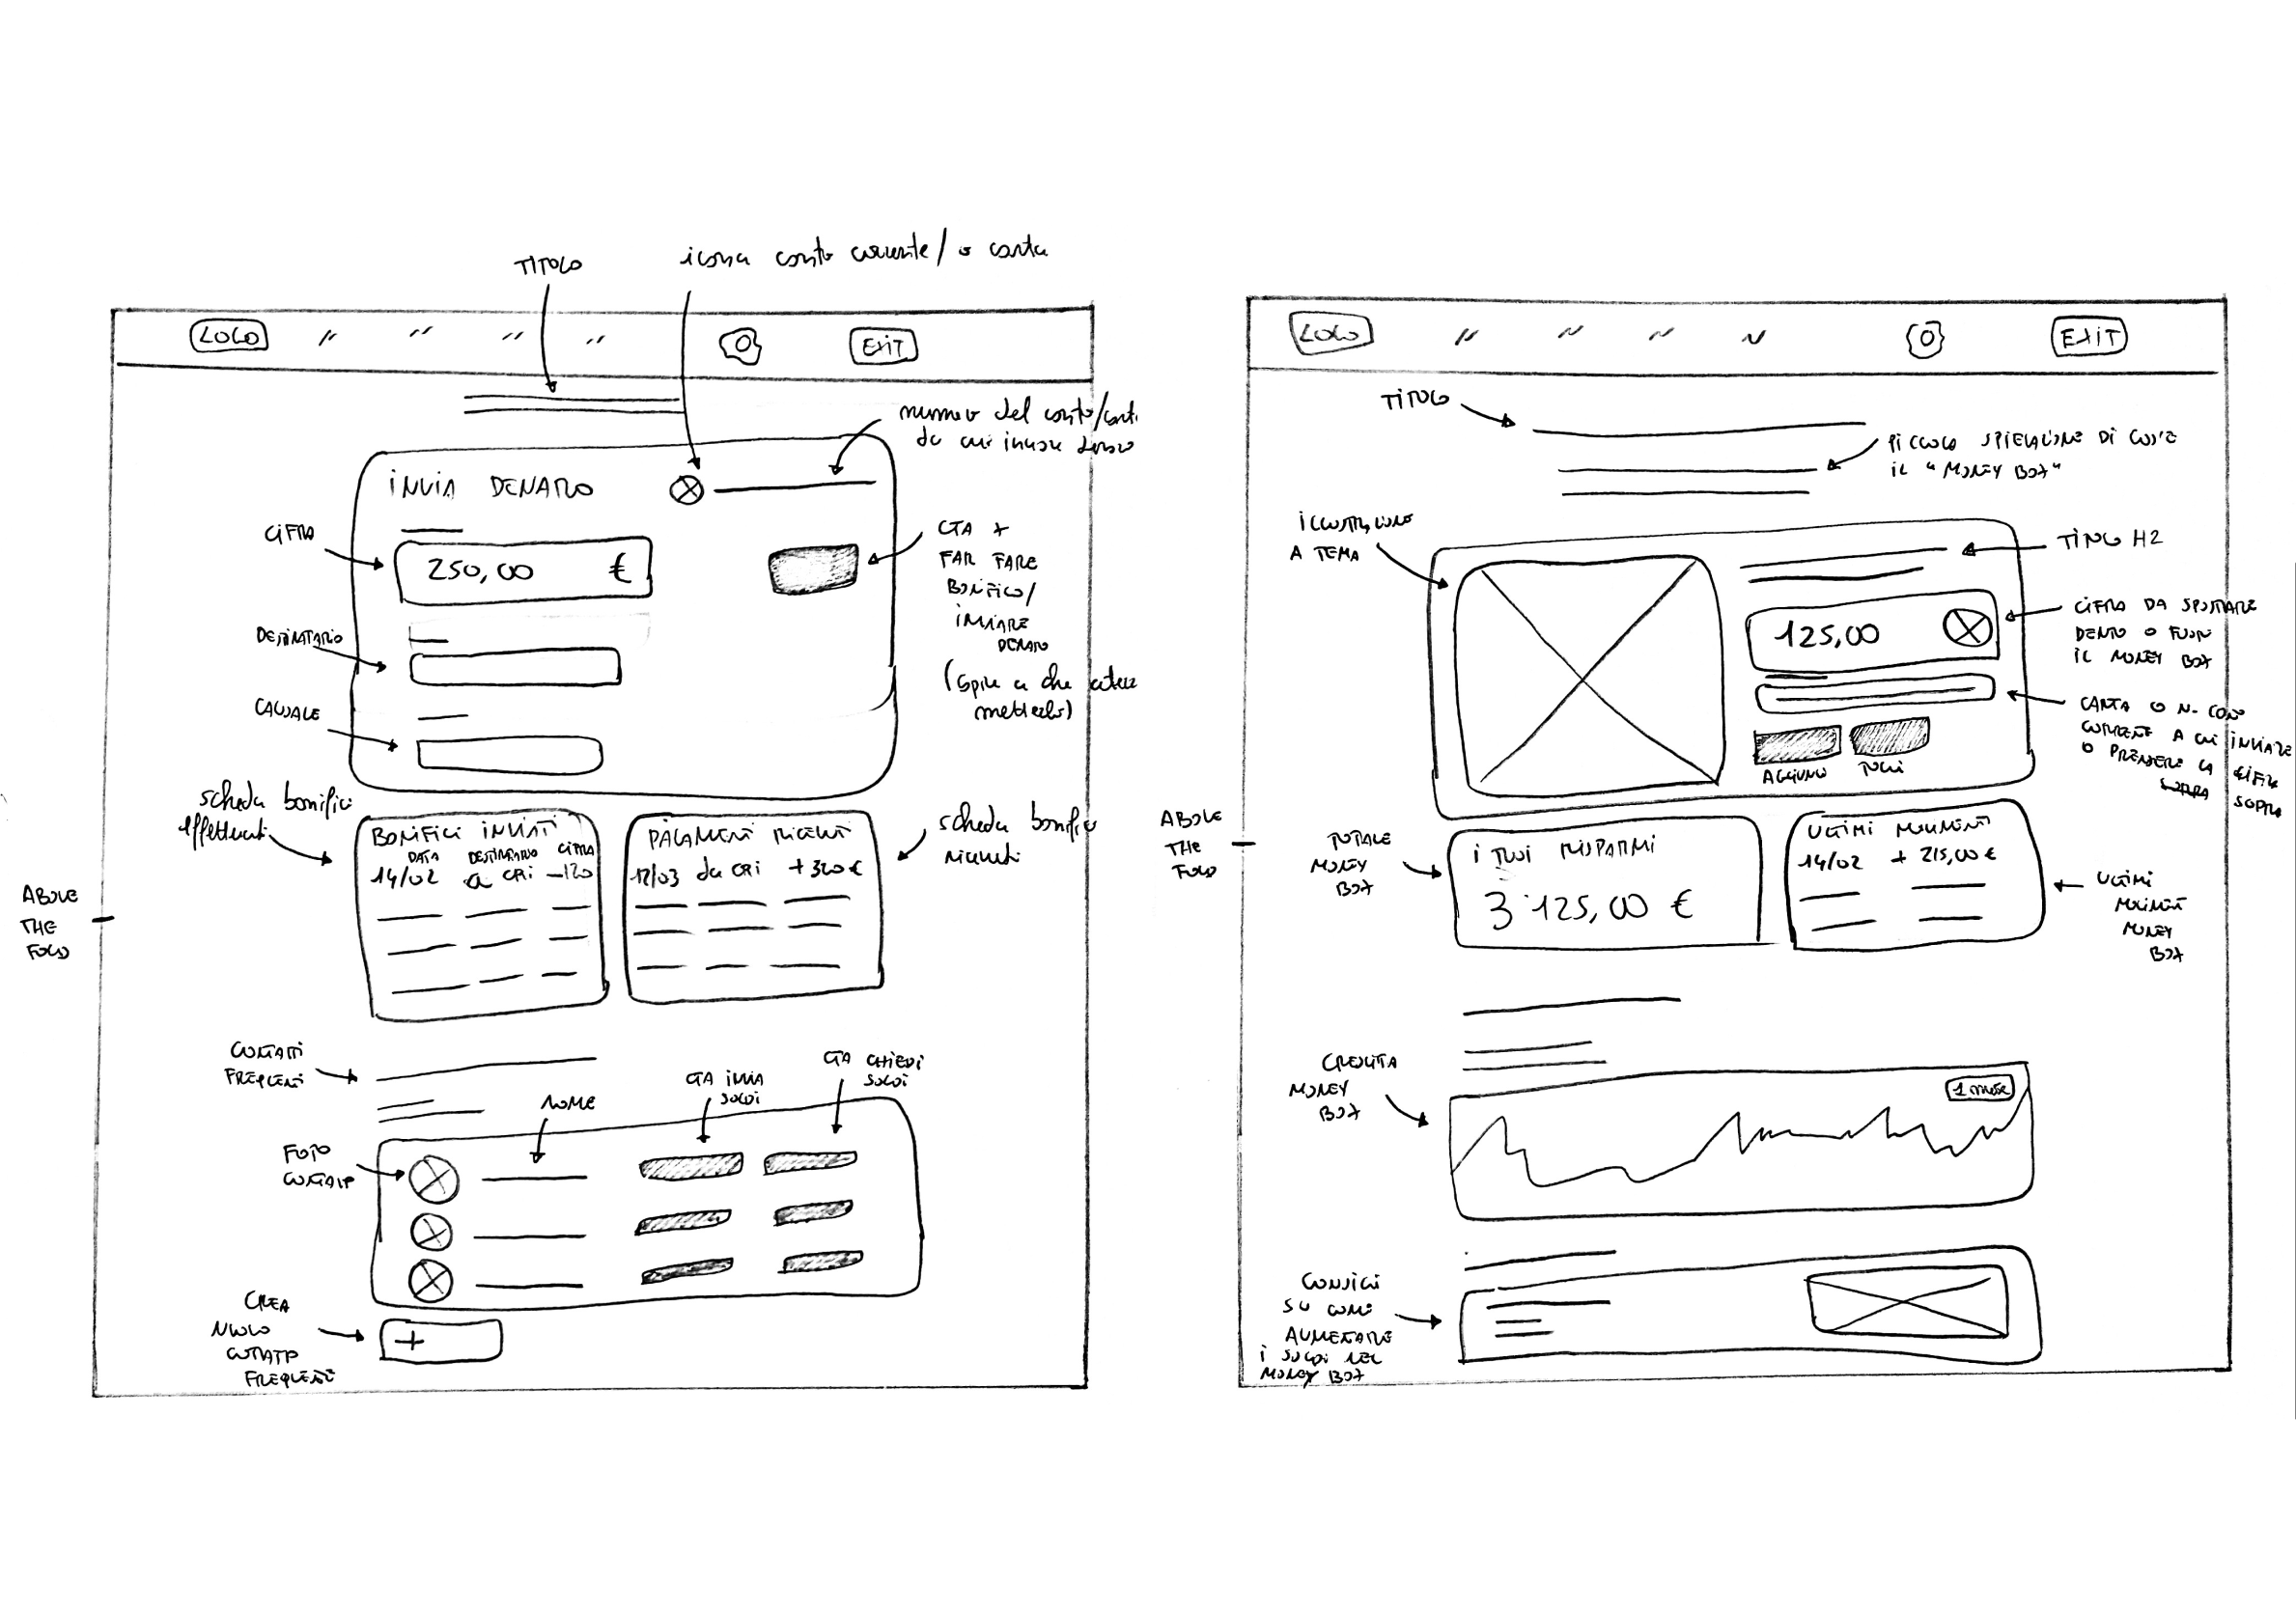 TITOLO
icona conto corrente/ o carta
LOGO
EXIT
numero del conto/cart.
da cui inviare denaro
INVIA DENARO
CIFRA
250,00 €
CTA X
FAR FARE
BONIFICO/
INVIARE
DENARO
(capire a che altezza
metterlo)
DESTINATARIO
CAUSALE
scheda bonifici
effettuati
BONIFICI INVIATI
DATA DESTINATARIO CIFRA
14/02 a CRI -120
PAGAMENTI RICEVUTI
12/03 da CRI +320€
scheda bonifici
ricevuti
ABOVE
THE
FOLD
CONTATTI
FREQUENTI
NOME
CTA INVIA
SOLDI
CTA CHIEDI
SOLDI
FOTO
CONTATTO
CREA
NUOVO
CONTATTO
FREQUENTE
+
LOGO
EXIT
TITOLO
PICCOLA SPIEGAZIONE DI COS'È
IL "MONEY BOX"
ILLUSTRAZIONE
A TEMA
TITOLO H2
125,00
CIFRA DA SPOSTARE
DENTRO O FUORI
IL MONEY BOX
CARTA O N. CONTO
CORRENTE A CUI INVIARE
O PRENDERE LA CIFRA
SOPRA
AGGIUNGI TOGLI
ABOVE
THE
FOLD
TOTALE
MONEY
BOX
I TUOI RISPARMI
3'125,00 €
ULTIMI MOVIMENTI
14/02 + 215,00 €
ULTIMI
MOVIMENTI
MONEY
BOX
CRESCITA
MONEY
BOX
1 mese
CONSIGLI
SU COME
AUMENTARE
I SOLDI NEL
MONEY BOX